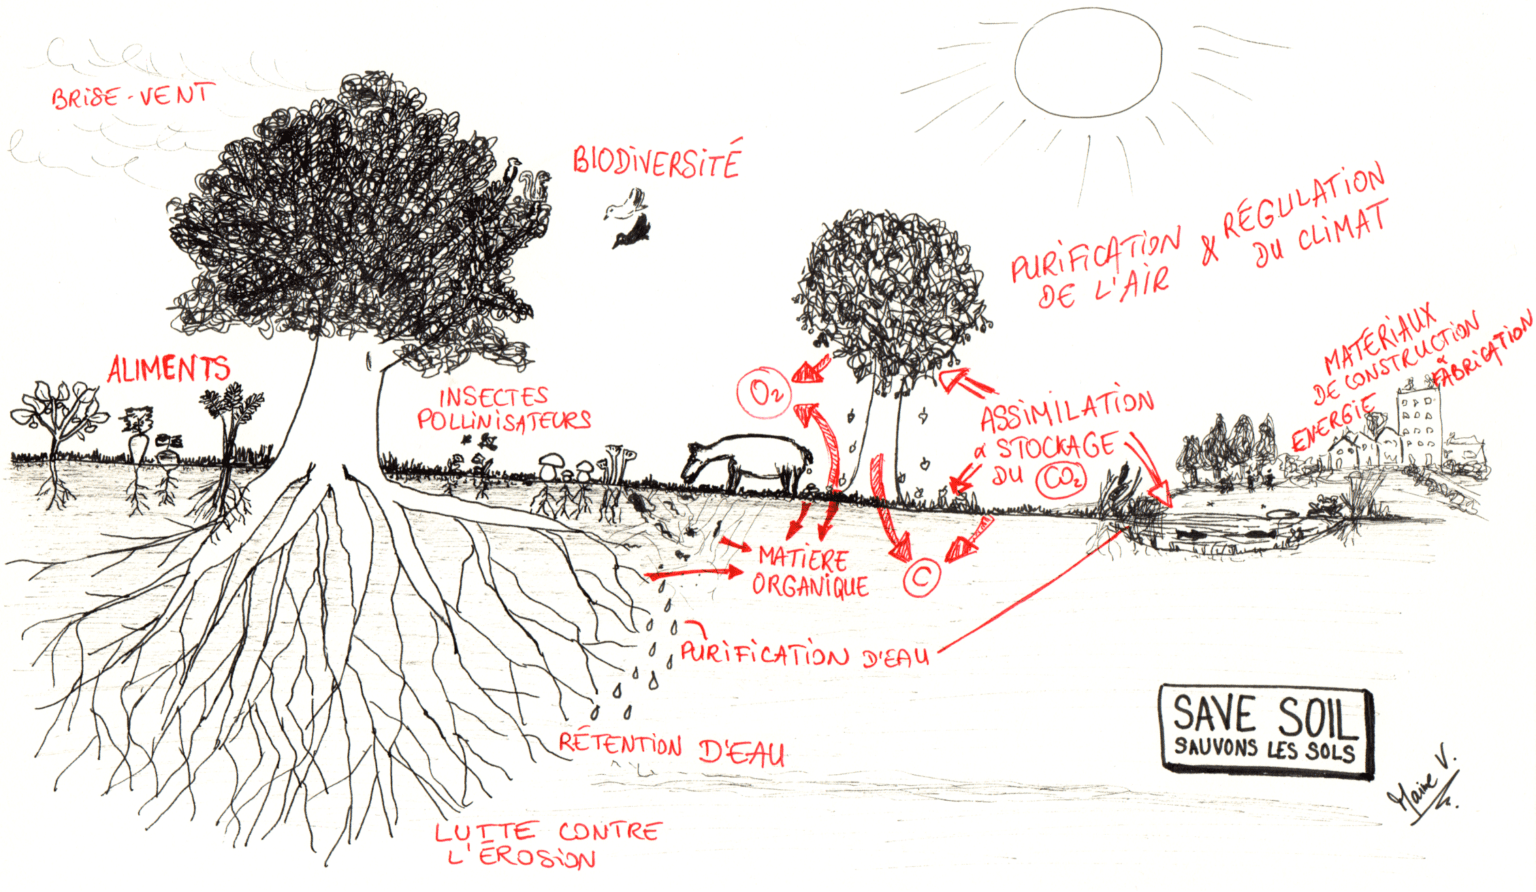 BRISE-VENT
BIODIVERSITÉ
PURIFICATION
DE L'AIR
&
RÉGULATION
DU CLIMAT
MATERIAUX
DE CONSTRUCTION
&
FABRICATION
ENERGIE
ALIMENTS
INSECTES
POLLINISATEURS
O2
ASSIMILATION
& STOCKAGE
DU CO2
MATIÈRE
ORGANIQUE
C
PURIFICATION D'EAU
RÉTENTION D'EAU
LUTTE CONTRE
L'ÉROSION
SAVE SOIL
SAUVONS LES SOLS